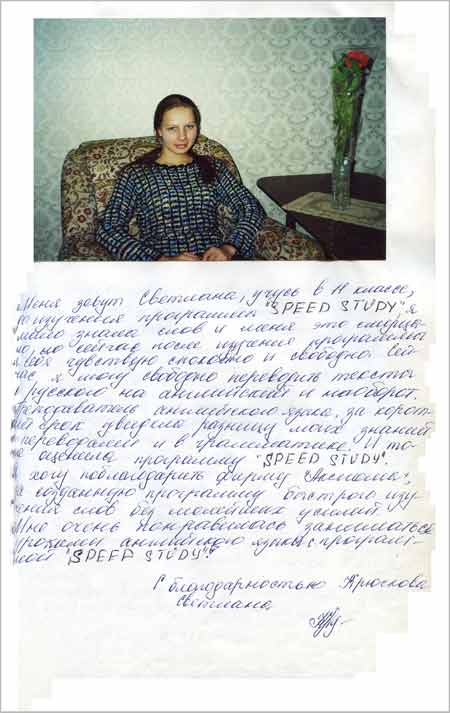 Меня зовут Светлана, учусь в 11 классе,
до изучения программы "SPEED STUDY", я
мало знала слов и меня это смущало,
но сейчас после изучения программы
я себя чувствую спокойно и свободно. Сей-
час я могу свободно переводить тексты
с русского на английский и наоборот.
Преподаватель английского языка, за корот-
кий срок увидела разницу моих знаний
в переводами и в грамматике. И то-
же оценила программу "SPEED STUDY".
Я хочу поблагодарить фирму "Аксиома",
за созданную программу быстрого изу-
чения слов без малейших усилий.
Мне очень понравилось заниматься
уроками английского языка с програм-
мой "SPEED STUDY".
С благодарностью
Светлана